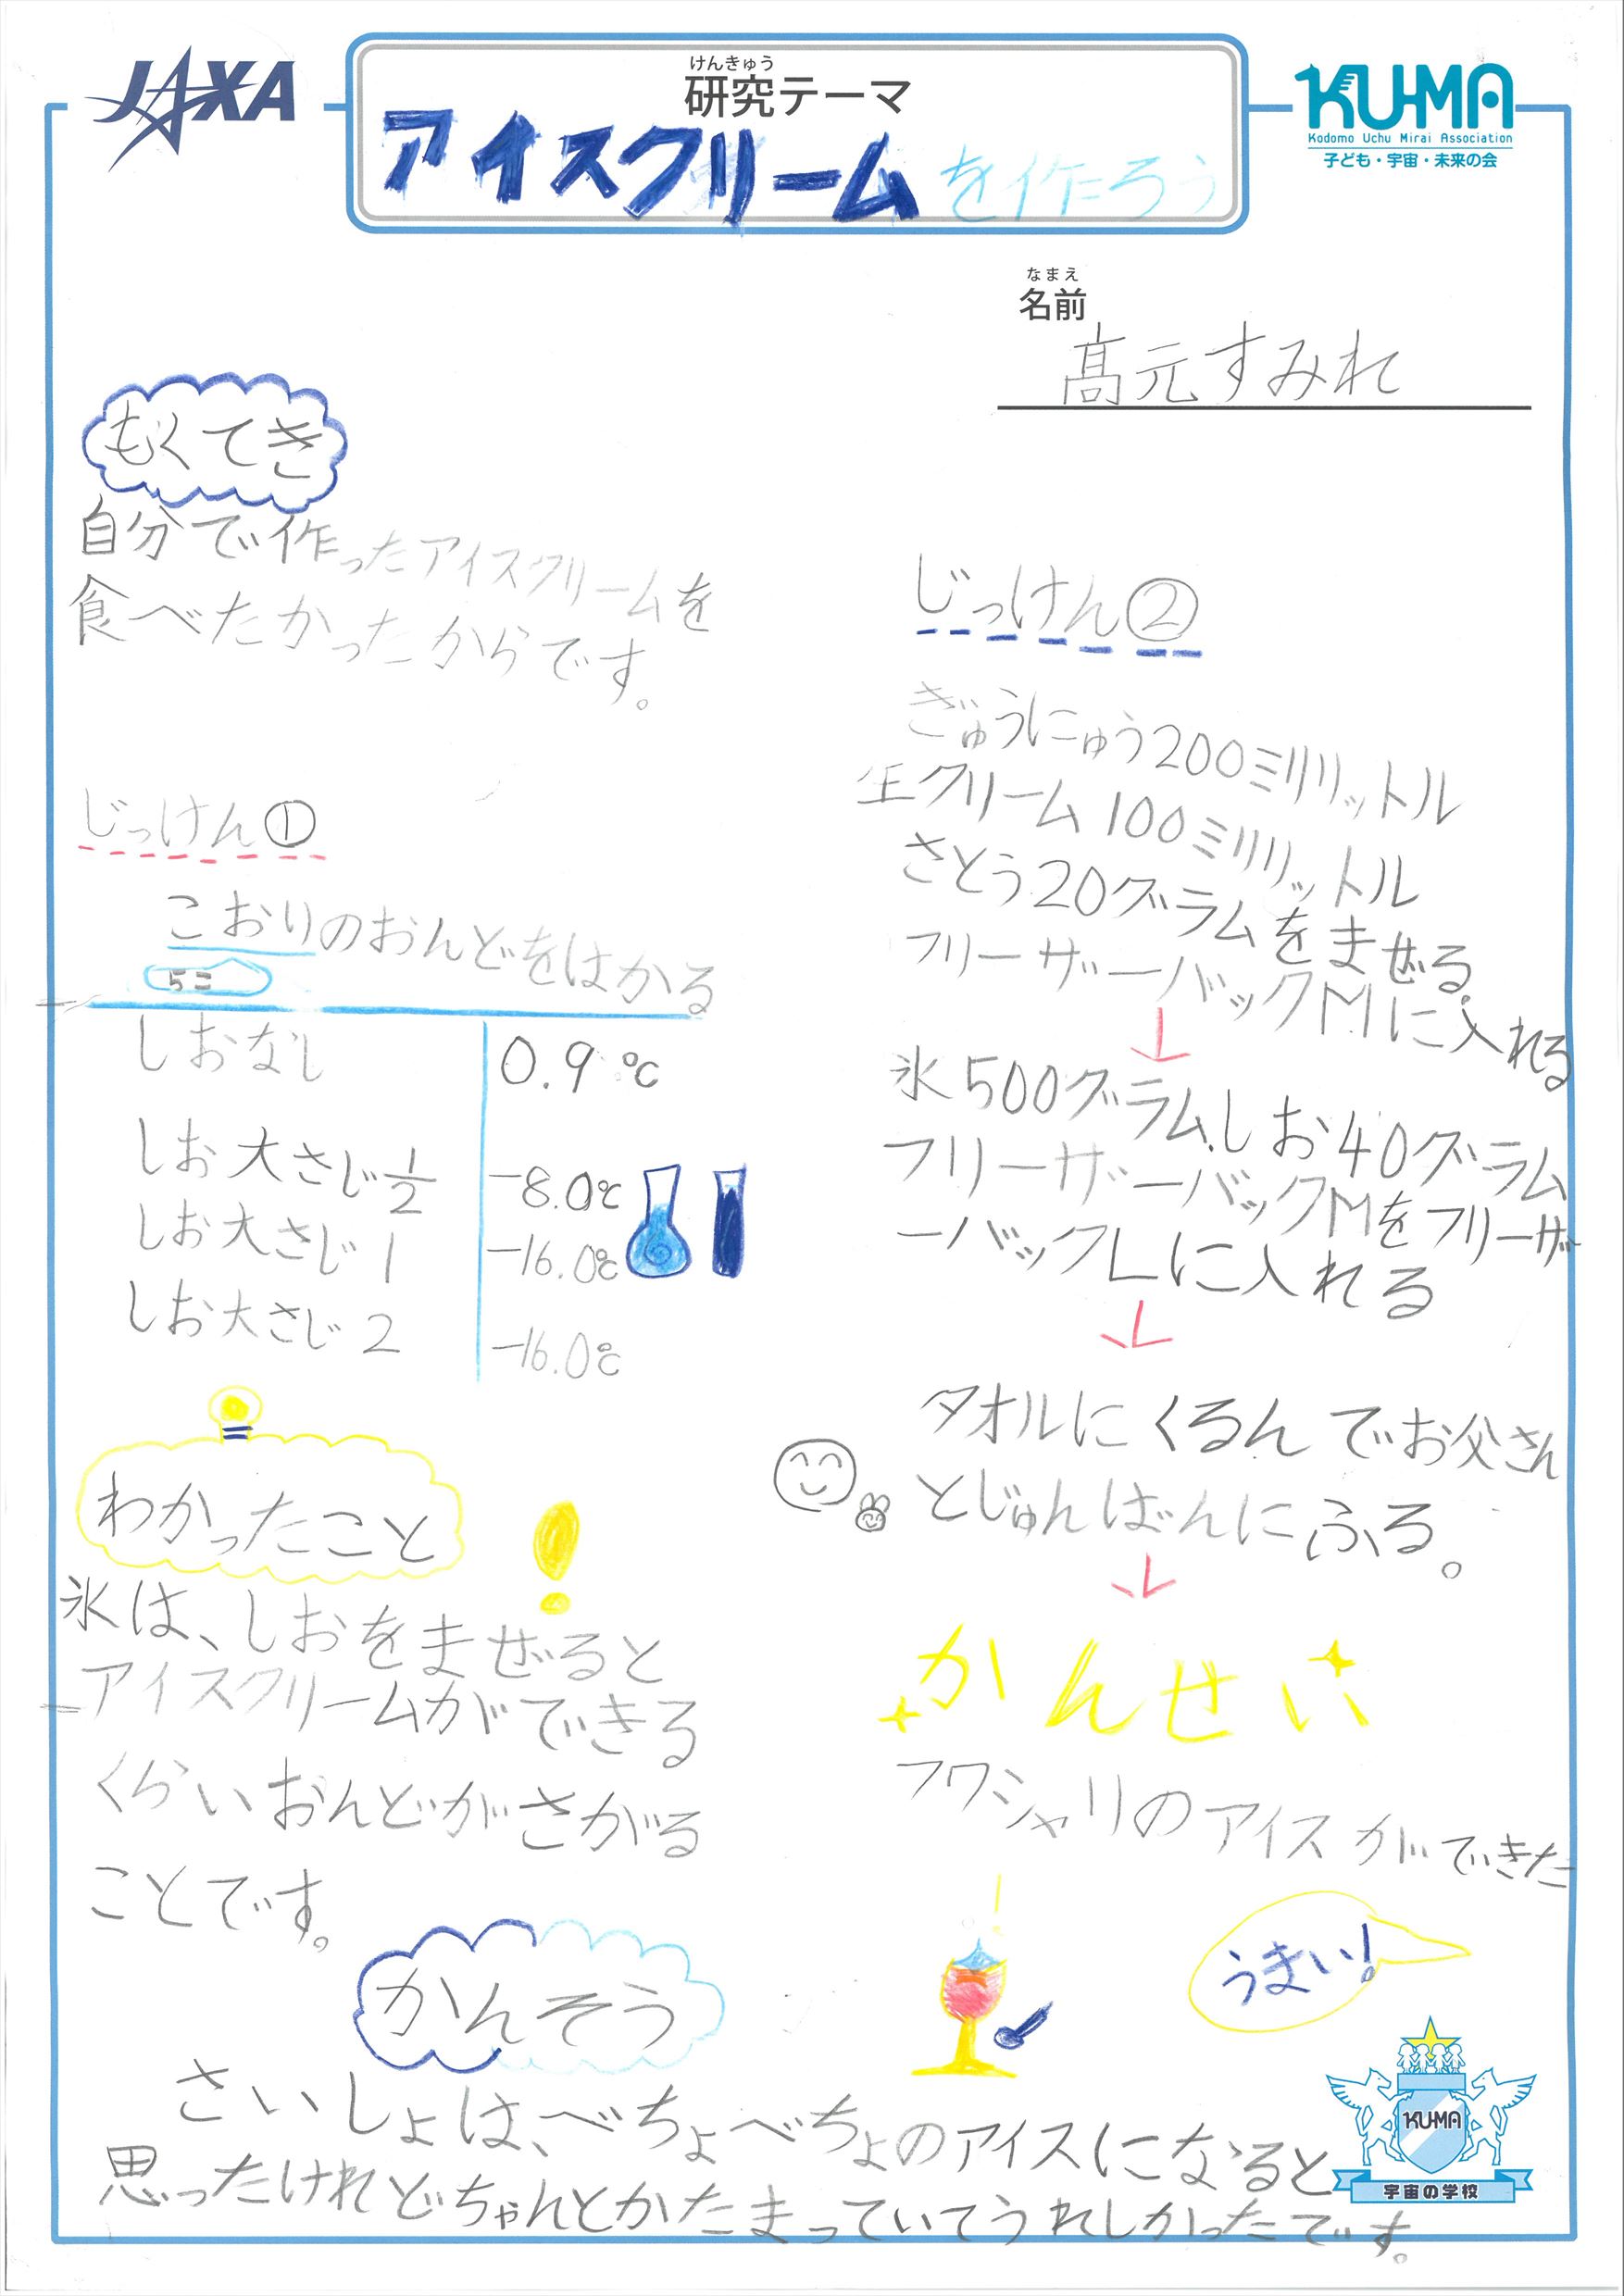 JAXA
けんきゅう
研究テーマ
アイスクリームを作ろう
KU-MA
Kodomo Uchu Mirai Association
子ども・宇宙・未来の会
なまえ
名前
髙元すみれ
もくてき
自分で作ったアイスクリームを
食べたかったからです。
じっけん①
こおりのおんどをはかる
5こ
しおなし 0.9℃
しお大さじ1/2 -8.0℃
しお大さじ1 -16.0℃
しお大さじ2 -16.0℃
わかったこと
氷は、しおをまぜると
アイスクリームができる
くらいおんどがさがる
ことです。
じっけん②
ぎゅうにゅう200ミリリットル
生クリーム100ミリリットル
さとう20グラムをまぜる。
フリーザーバックMに入れる
↓
氷500グラム、しお40グラム
フリーザーバックMをフリーザ
ーバックLに入れる
↓
タオルにくるんでお父さん
とじゅんばんにふる。
↓
かんせい
フワシャリのアイスができた
うまい!
かんそう
さいしょは、べちょべちょのアイスになると
思ったけれどちゃんとかたまっていてうれしかったです。
KU-MA
宇宙の学校